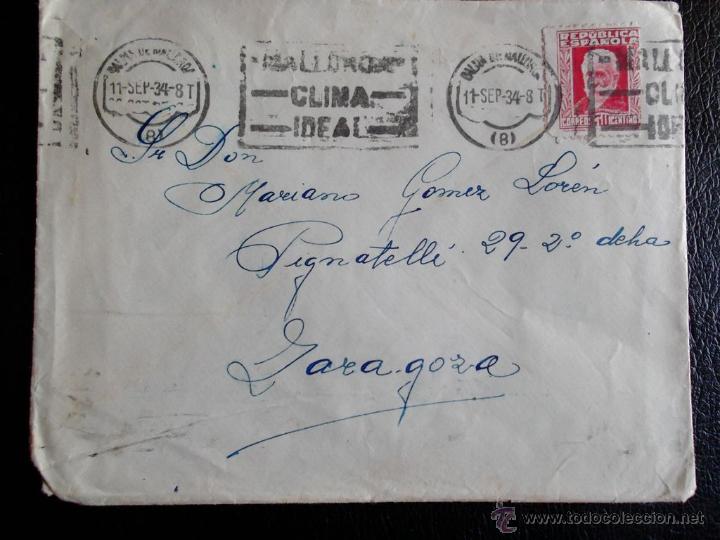 PALMA DE MALLORCA
11-SEP-34-8T
(8)
MALLORCA
CLIMA
IDEAL
PALMA DE MALLORCA
11-SEP-34-8T
(8)
REPÚBLICA
ESPAÑOLA
CORREOS
CENTIMO
Sr Don
Mariano Gomez Lorén
Pignatelli 29-2º dcha
Zaragoza
© todocoleccion
www.todocoleccion.net